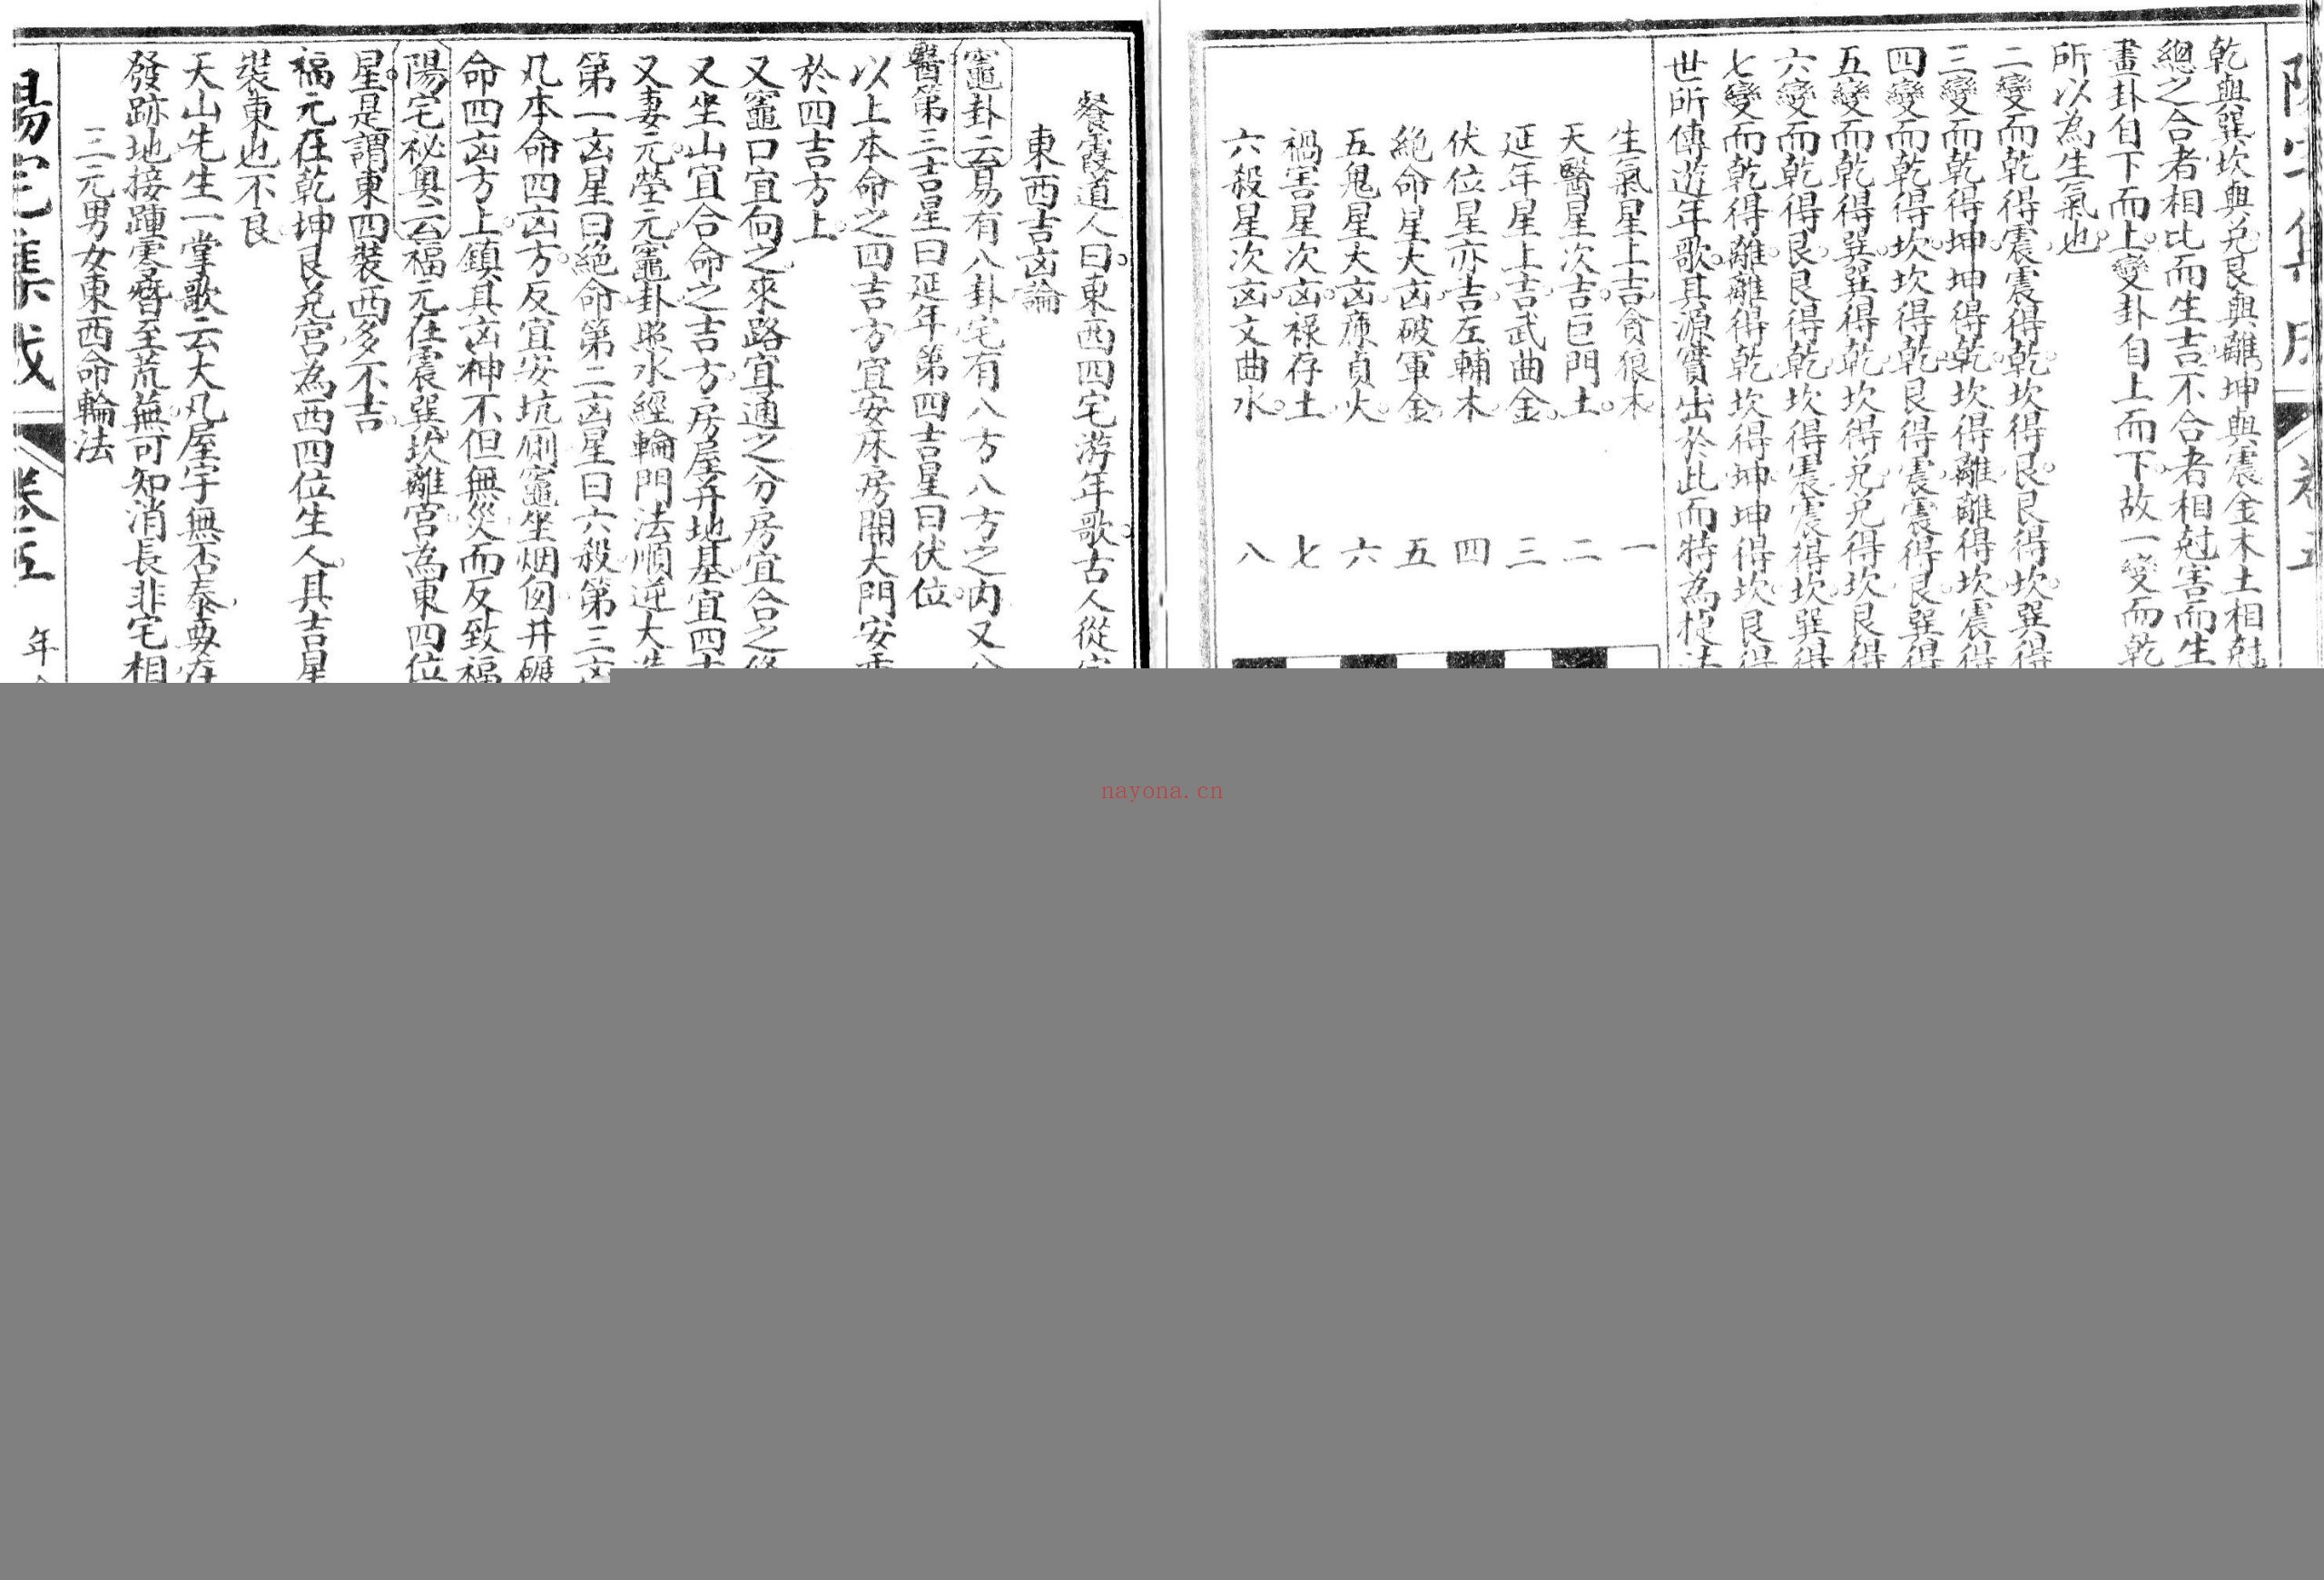 乾與巽坎與兌艮與離坤與震金木土相尅
總之合者相比而生吉不合者相尅害而生
畫卦自下而上變卦自上而下故一變而乾
所以為生氣也
二變而乾得震震得乾坎得艮艮得坎巽得
三變而乾得坤坤得乾坎得離離得坎震得
四變而乾得坎坎得乾艮得震震得艮巽得
五變而乾得巽巽得乾坎得兌兌得坎艮得
六變而乾得艮艮得乾坎得震震得坎巽得
七變而乾得離離得乾坎得坤坤得坎艮得
世所傳遊年歌其源實出於此而特為捷法
生氣星上吉貪狼木 一
天醫星次吉巨門土 二
延年星上吉武曲金 三
伏位星亦吉左輔木 四
絕命星大凶破軍金 五
五鬼星大凶廉貞火 六
禍害星次凶祿存土 七
六殺星次凶文曲水 八
餐霞道人曰東西四宅游年歌古人從
東西吉凶論
竈卦云易有八卦宅有八方八方之內又
醫第三吉星曰延年第四吉星曰伏位
以上本命之四吉方宜安床房開大門安
於四吉方上
又竈口宜向之來路宜通之分房宜合之
又坐山宜合命之吉方房屋并地基宜四
又妻元塋元竈卦照水經輪門法順逆大
第一凶星曰絕命第二凶星曰六殺第三
凡本命四凶方反宜安坑厠竈坐烟囱井碾
命四凶方上鎮其凶神不但無災而反致福
陽宅祕奧云福元在震巽坎離宮為東四位
星是謂東四裝西多不吉
福元在乾坤艮兌宮為西四位生人其吉星
裝東也不良
天山先生一掌歌云大凡屋宇無否泰要在
發跡地接踵寒窘至荒蕪可知消長非宅相
三元男女東西命輪法
陽宅集成 卷五 年
nayona.cn